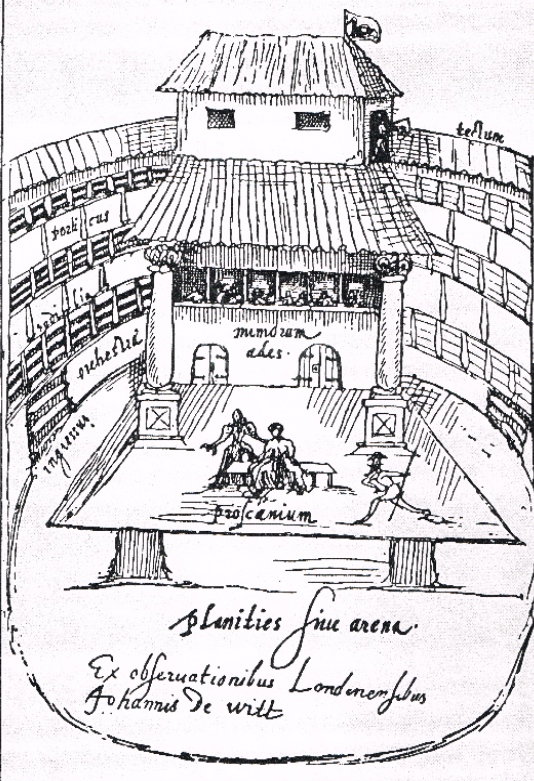 tectum
porticus
sedilia
mimorum
ædes.
orchestra
ingressus
proſcænium
planities ſiue arena.
Ex obſeruationibus Londinenſibus
Johannis De witt